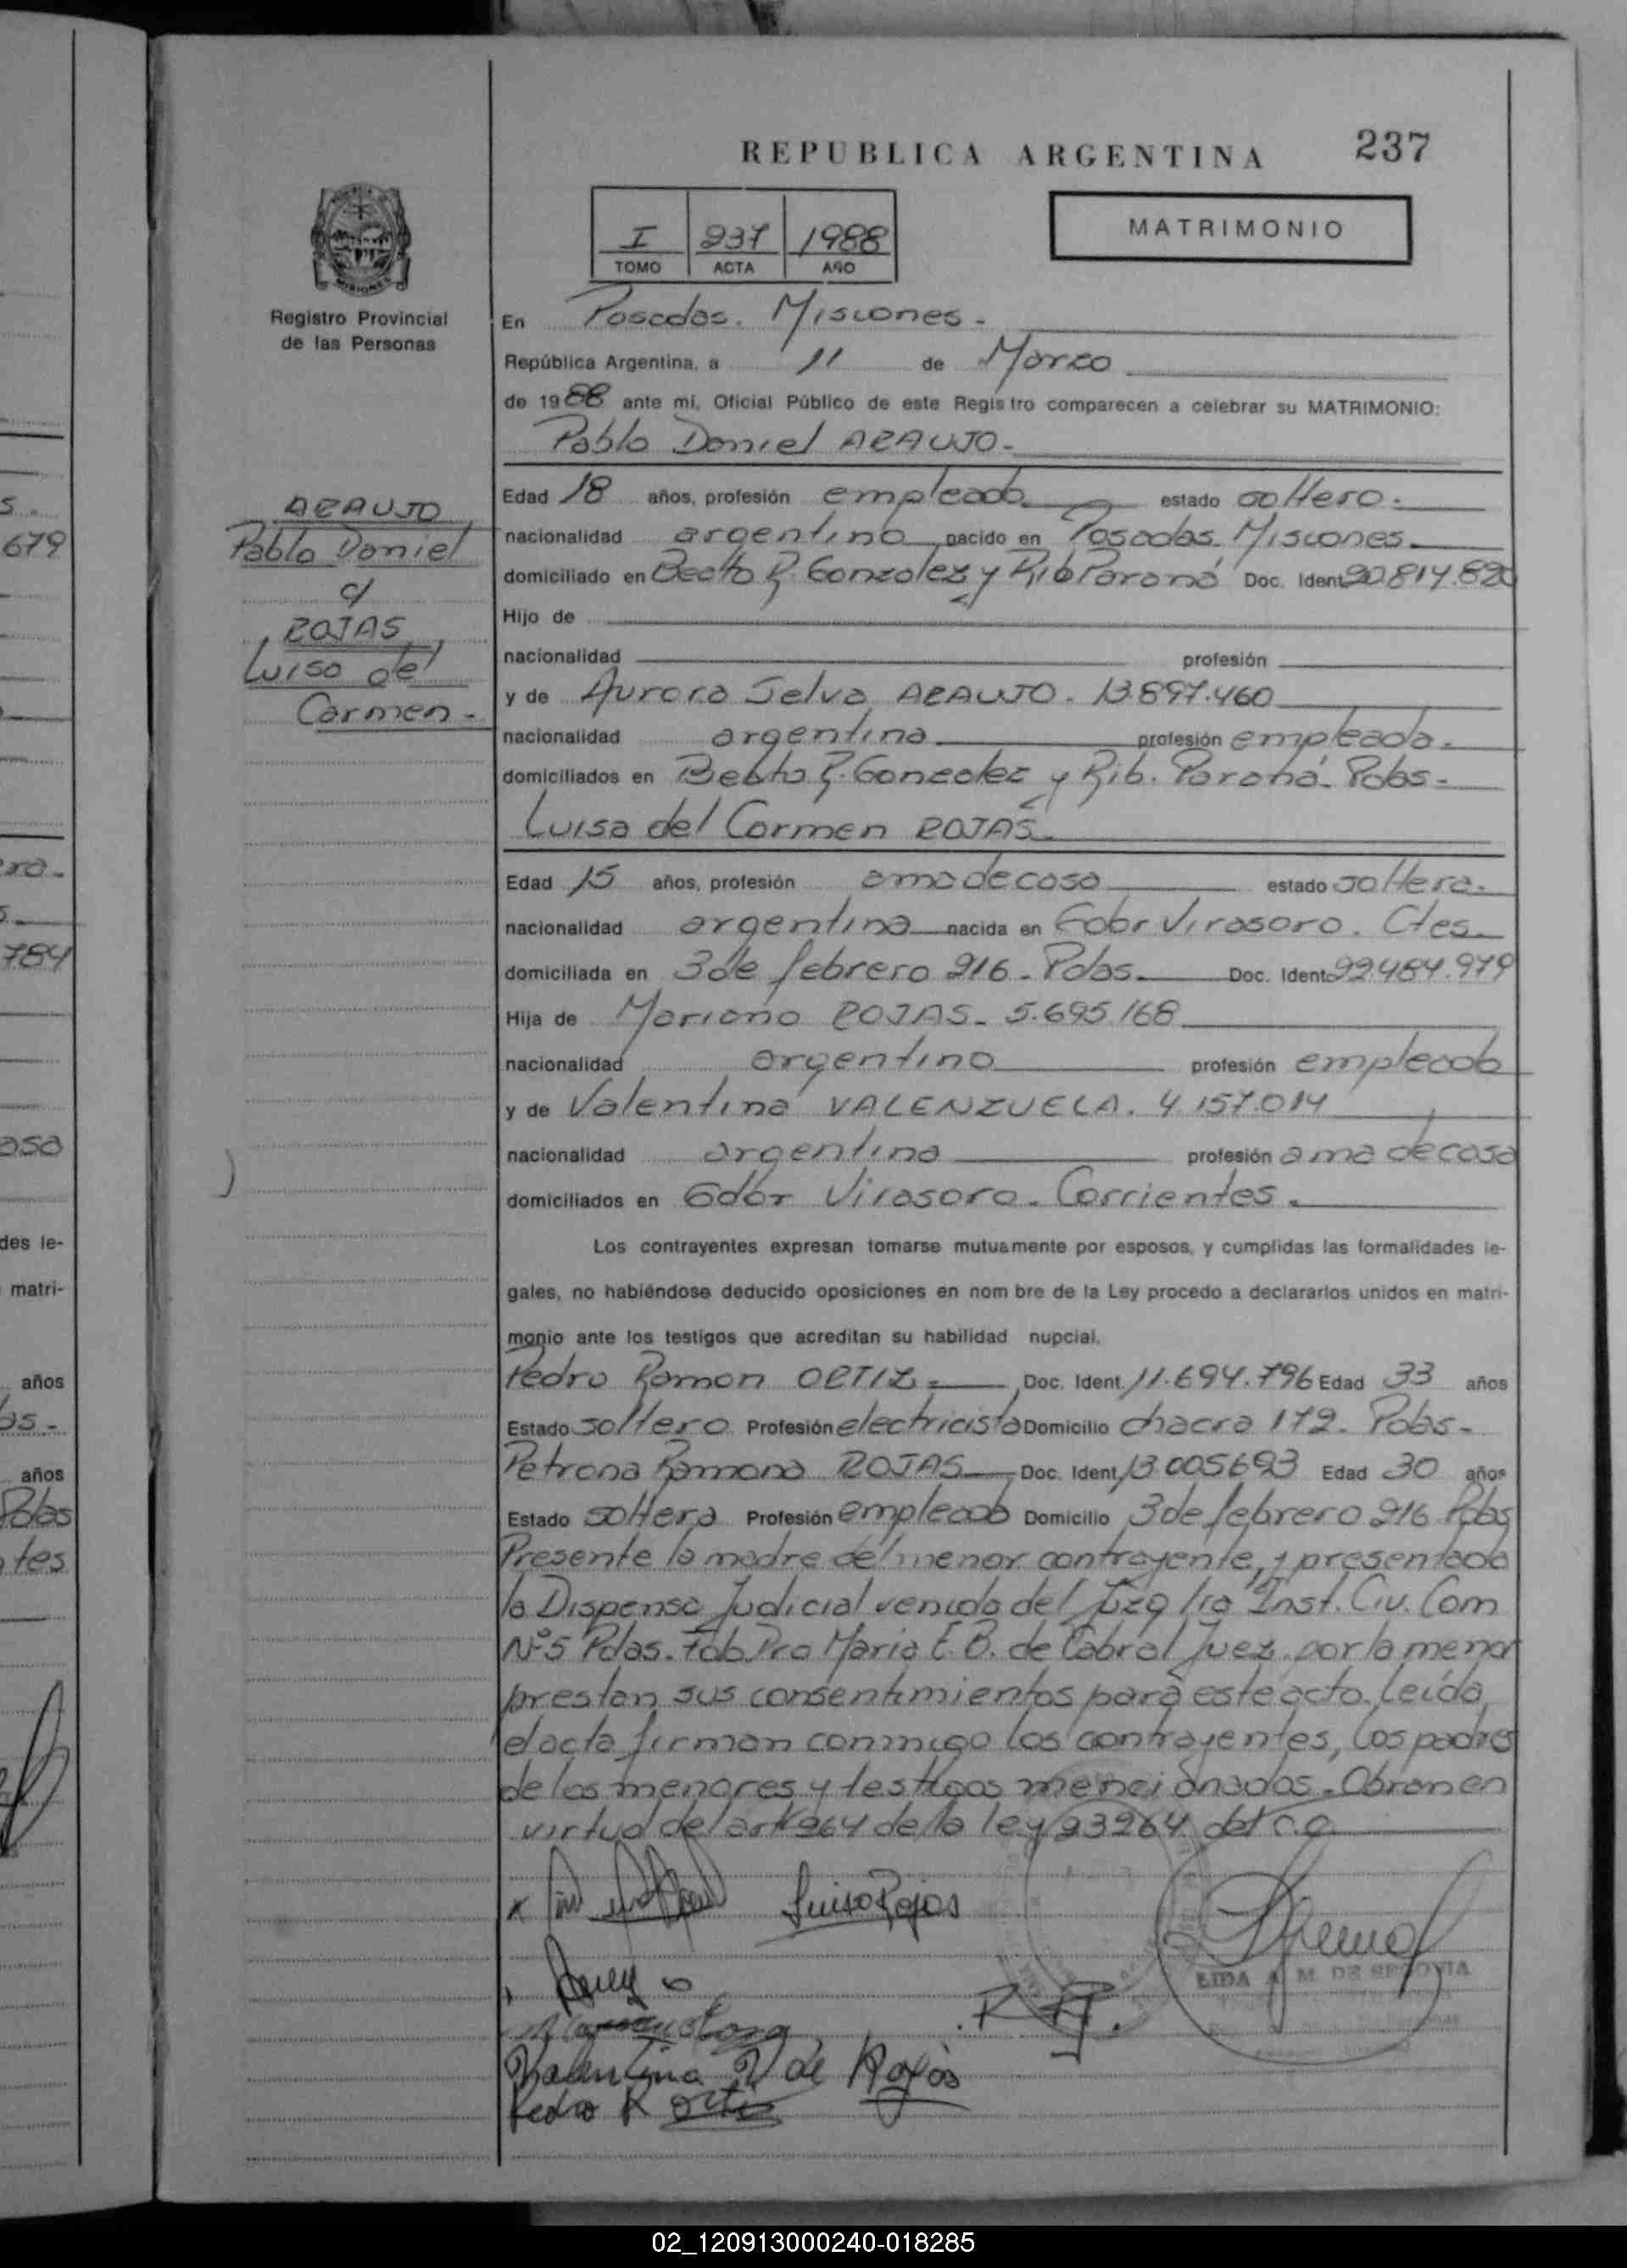 REPUBLICA ARGENTINA 237
I 237 1988
TOMO ACTA AÑO
MATRIMONIO
MISIONES
Registro Provincial
de las Personas
En Posadas. Misiones.
República Argentina, a 11 de Marzo
de 1988 ante mí, Oficial Público de este Registro comparecen a celebrar su MATRIMONIO:
Pablo Daniel ARAUJO.
ARAUJO
Pablo Daniel
c/
ROJAS
Luisa del
Carmen.
Edad 18 años, profesión empleado estado soltero.
nacionalidad argentino nacido en Posadas. Misiones.
domiciliado en Beato R. Gonzalez y Rib Paraná Doc. Ident 20.814.820
Hijo de
nacionalidad profesión
y de Aurora Selva ARAUJO. 13.897.460
nacionalidad argentina profesión empleada.
domiciliados en Beato R. Gonzalez y Rib. Paraná. Pdas.
Luisa del Carmen ROJAS.
Edad 15 años, profesión ama de casa estado soltera.
nacionalidad argentina nacida en Gobr Virasoro. Ctes.
domiciliada en 3 de febrero 216. Pdas. Doc. Ident 22.484.979
Hija de Mariano ROJAS. 5.695.168
nacionalidad argentino profesión empleado
y de Valentina VALENZUELA. 4.157.014
nacionalidad argentina profesión ama de casa
domiciliados en Gdor Virasoro. Corrientes.
Los contrayentes expresan tomarse mutuamente por esposos, y cumplidas las formalidades le-
gales, no habiéndose deducido oposiciones en nom bre de la Ley procedo a declararlos unidos en matri-
monio ante los testigos que acreditan su habilidad nupcial.
Pedro Ramon ORTIZ. Doc. Ident. 11.694.796 Edad 33 años
Estado soltero Profesión electricista Domicilio chacra 172. Pdas.
Petrona Ramona ROJAS Doc. Ident. 13.005693 Edad 30 años
Estado soltera Profesión empleada Domicilio 3 de febrero 216 Pdas
Presente la madre del menor contrayente, y presentada
la Dispensa Judicial venida del Juzg 1ra Inst. Civ. Com
Nº5 Pdas. Fdo. Dra Maria E. B. de Cabral Juez. por la menor
prestan sus consentimientos para este acto. Leída
el acta firman conmigo los contrayentes, los padres
de los menores y testigos mencionados. Obran en
virtud del art 264 de la ley 23264 del C.C.
Luisa Rojas
R. R.
LIDA A. M. DE SEGOVIA
Valentina V de Rojas
Pedro R Ortiz
s.
679
784
asa
des le-
matri-
años
años
Pdas
tes
02_120913000240-018285